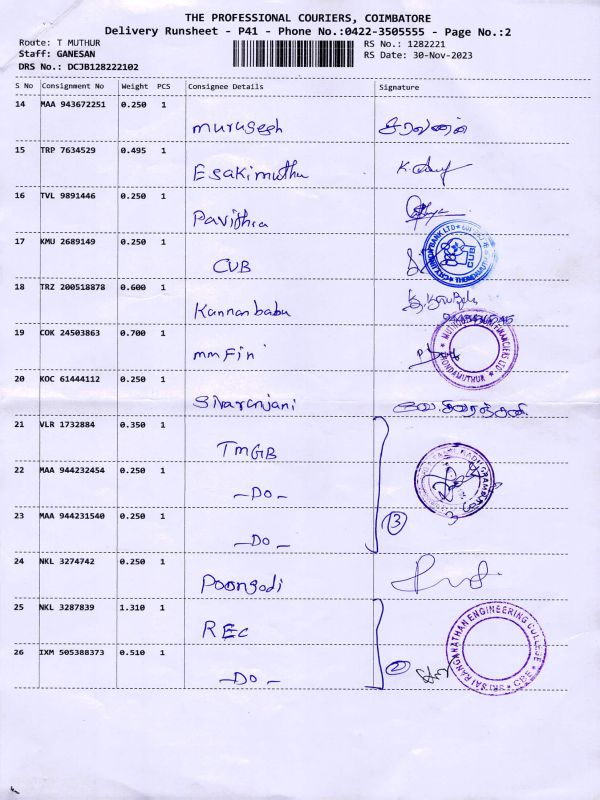 THE PROFESSIONAL COURIERS, COIMBATORE
Delivery Runsheet - P41 - Phone No.:0422-3505555 - Page No.:2
Route: T MUTHUR
RS No.: 1282221
Staff: GANESAN
RS Date: 30-Nov-2023
DRS No.: DCJB128222102
S No Consignment No Weight PCS Consignee Details Signature
14 MAA 943672251 0.250 1
murugesh சரவணன்
15 TRP 7634529 0.495 1
Esakimuthu
16 TVL 9891446 0.250 1
Pavithra
17 KMU 2689149 0.250 1
CUB
CITY UNION BANK LTD
CUB
18 TRZ 200518878 0.600 1
Kannanbabu
19 COK 24503863 0.700 1
mmFin
FINANCIERS LTD
THONDAMUTHUR
20 KOC 61444112 0.250 1
Sivaranjani
21 VLR 1732884 0.350 1
TMGB
22 MAA 944232454 0.250 1
-Do-
23 MAA 944231540 0.250 1
-Do- 3
24 NKL 3274742 0.250 1
Poongodi
25 NKL 3287839 1.310 1
REC
26 IXM 505388373 0.510 1
-Do- 2
SRI SAI RANGANATHAN ENGINEERING COLLEGE
CBE